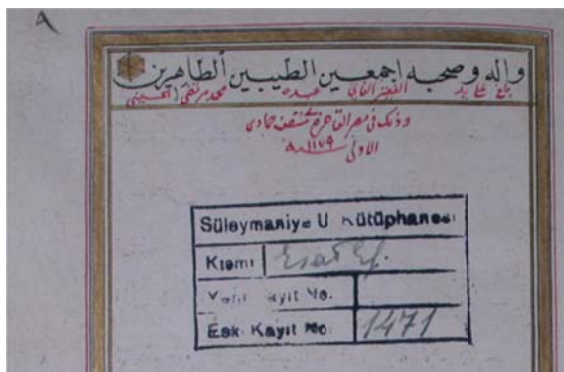 ٨
واله وصحبه اجمعين الطيبين الطاهرين
بلغ على يد الفقير الفاني عبده محمد مرتضى الحسيني
وذلك في مصر القاهرة منتصف جمادى
الاولى ١١٧٩
Süleymaniye U Kütüphanesi
Kısmı Esat Ef.
Kayıt No.
Eski Kayıt No. 1471